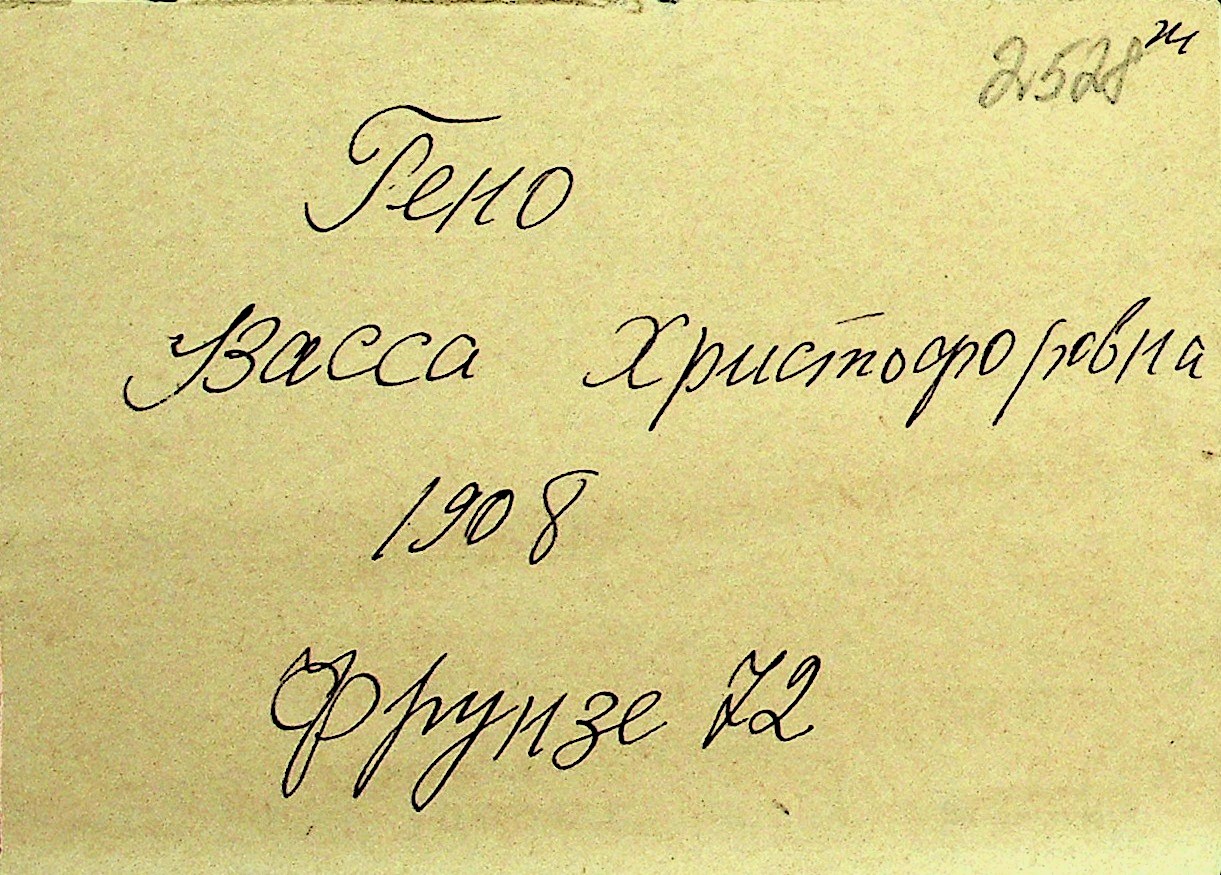 2528 ж
Гено
Васса Христофоровна
1908
Фрунзе 72